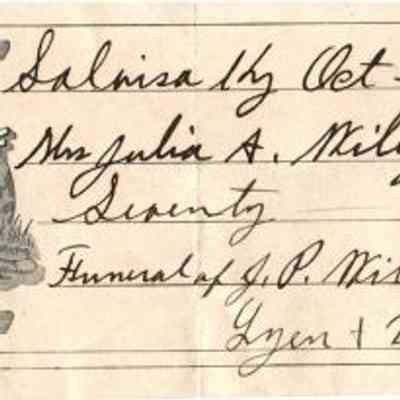 Salvisa Ky Oct
Mrs Julia A. Wil
Seventy
Funeral of J. P. Wi
Lyen +